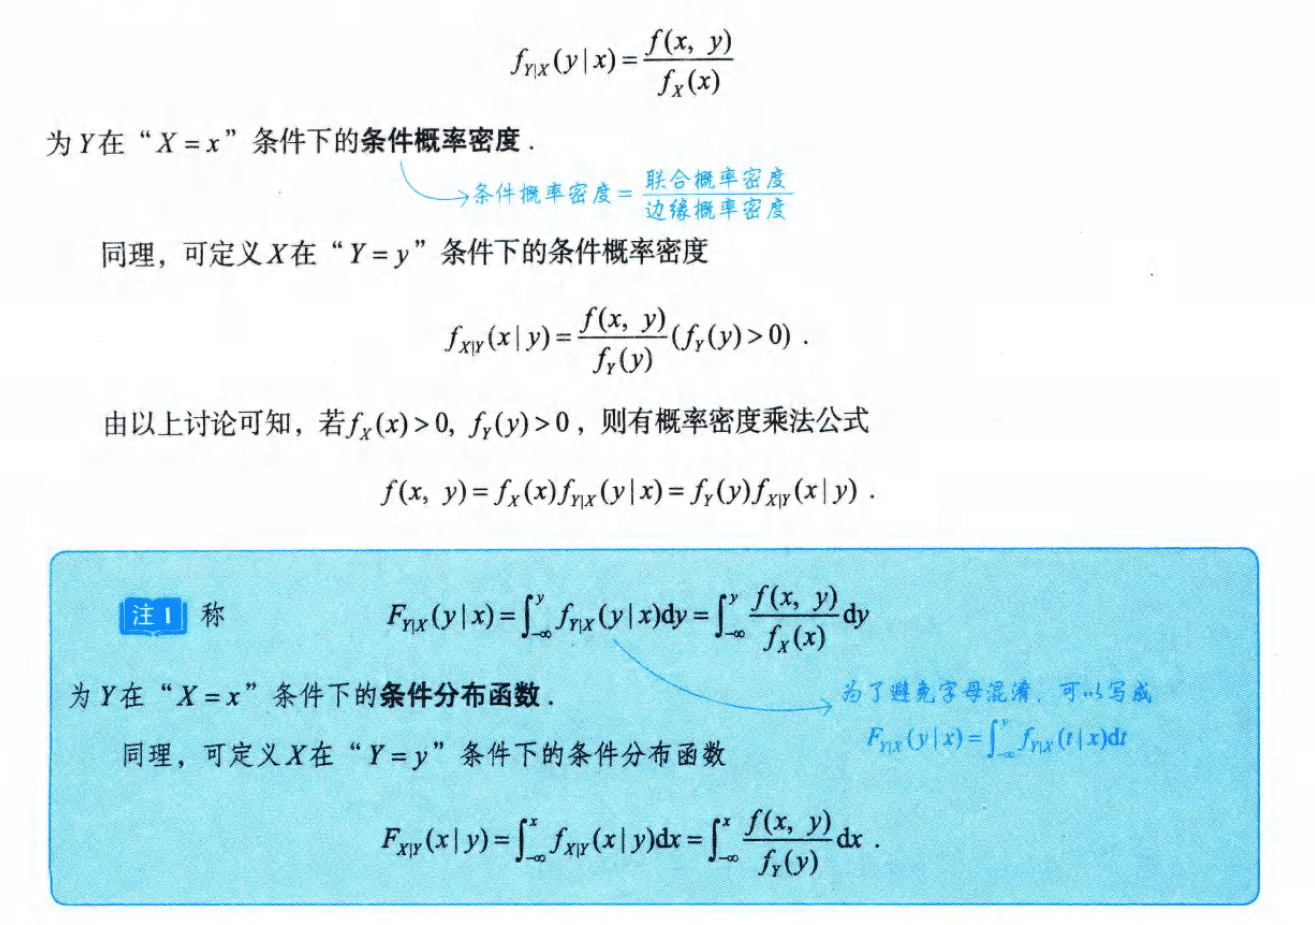 f_{Y|X}(y|x)=\frac{f(x, y)}{f_X(x)}
为Y在“X=x”条件下的条件概率密度.
条件概率密度=\frac{联合概率密度}{边缘概率密度}
同理，可定义X在“Y=y”条件下的条件概率密度
f_{X|Y}(x|y)=\frac{f(x, y)}{f_Y(y)}(f_Y(y)>0).
由以上讨论可知，若f_X(x)>0, f_Y(y)>0，则有概率密度乘法公式
f(x, y)=f_X(x)f_{Y|X}(y|x)=f_Y(y)f_{X|Y}(x|y).
注1 称 F_{Y|X}(y|x)=\int_{-∞}^{y} f_{Y|X}(y|x)dy=\int_{-∞}^{y} \frac{f(x, y)}{f_X(x)}dy
为Y在“X=x”条件下的条件分布函数.
为了避免字母混淆，可以写成
F_{Y|X}(y|x)=\int_{-∞}^{y} f_{Y|X}(t|x)dt
同理，可定义X在“Y=y”条件下的条件分布函数
F_{X|Y}(x|y)=\int_{-∞}^{x} f_{X|Y}(x|y)dx=\int_{-∞}^{x} \frac{f(x, y)}{f_Y(y)}dx.